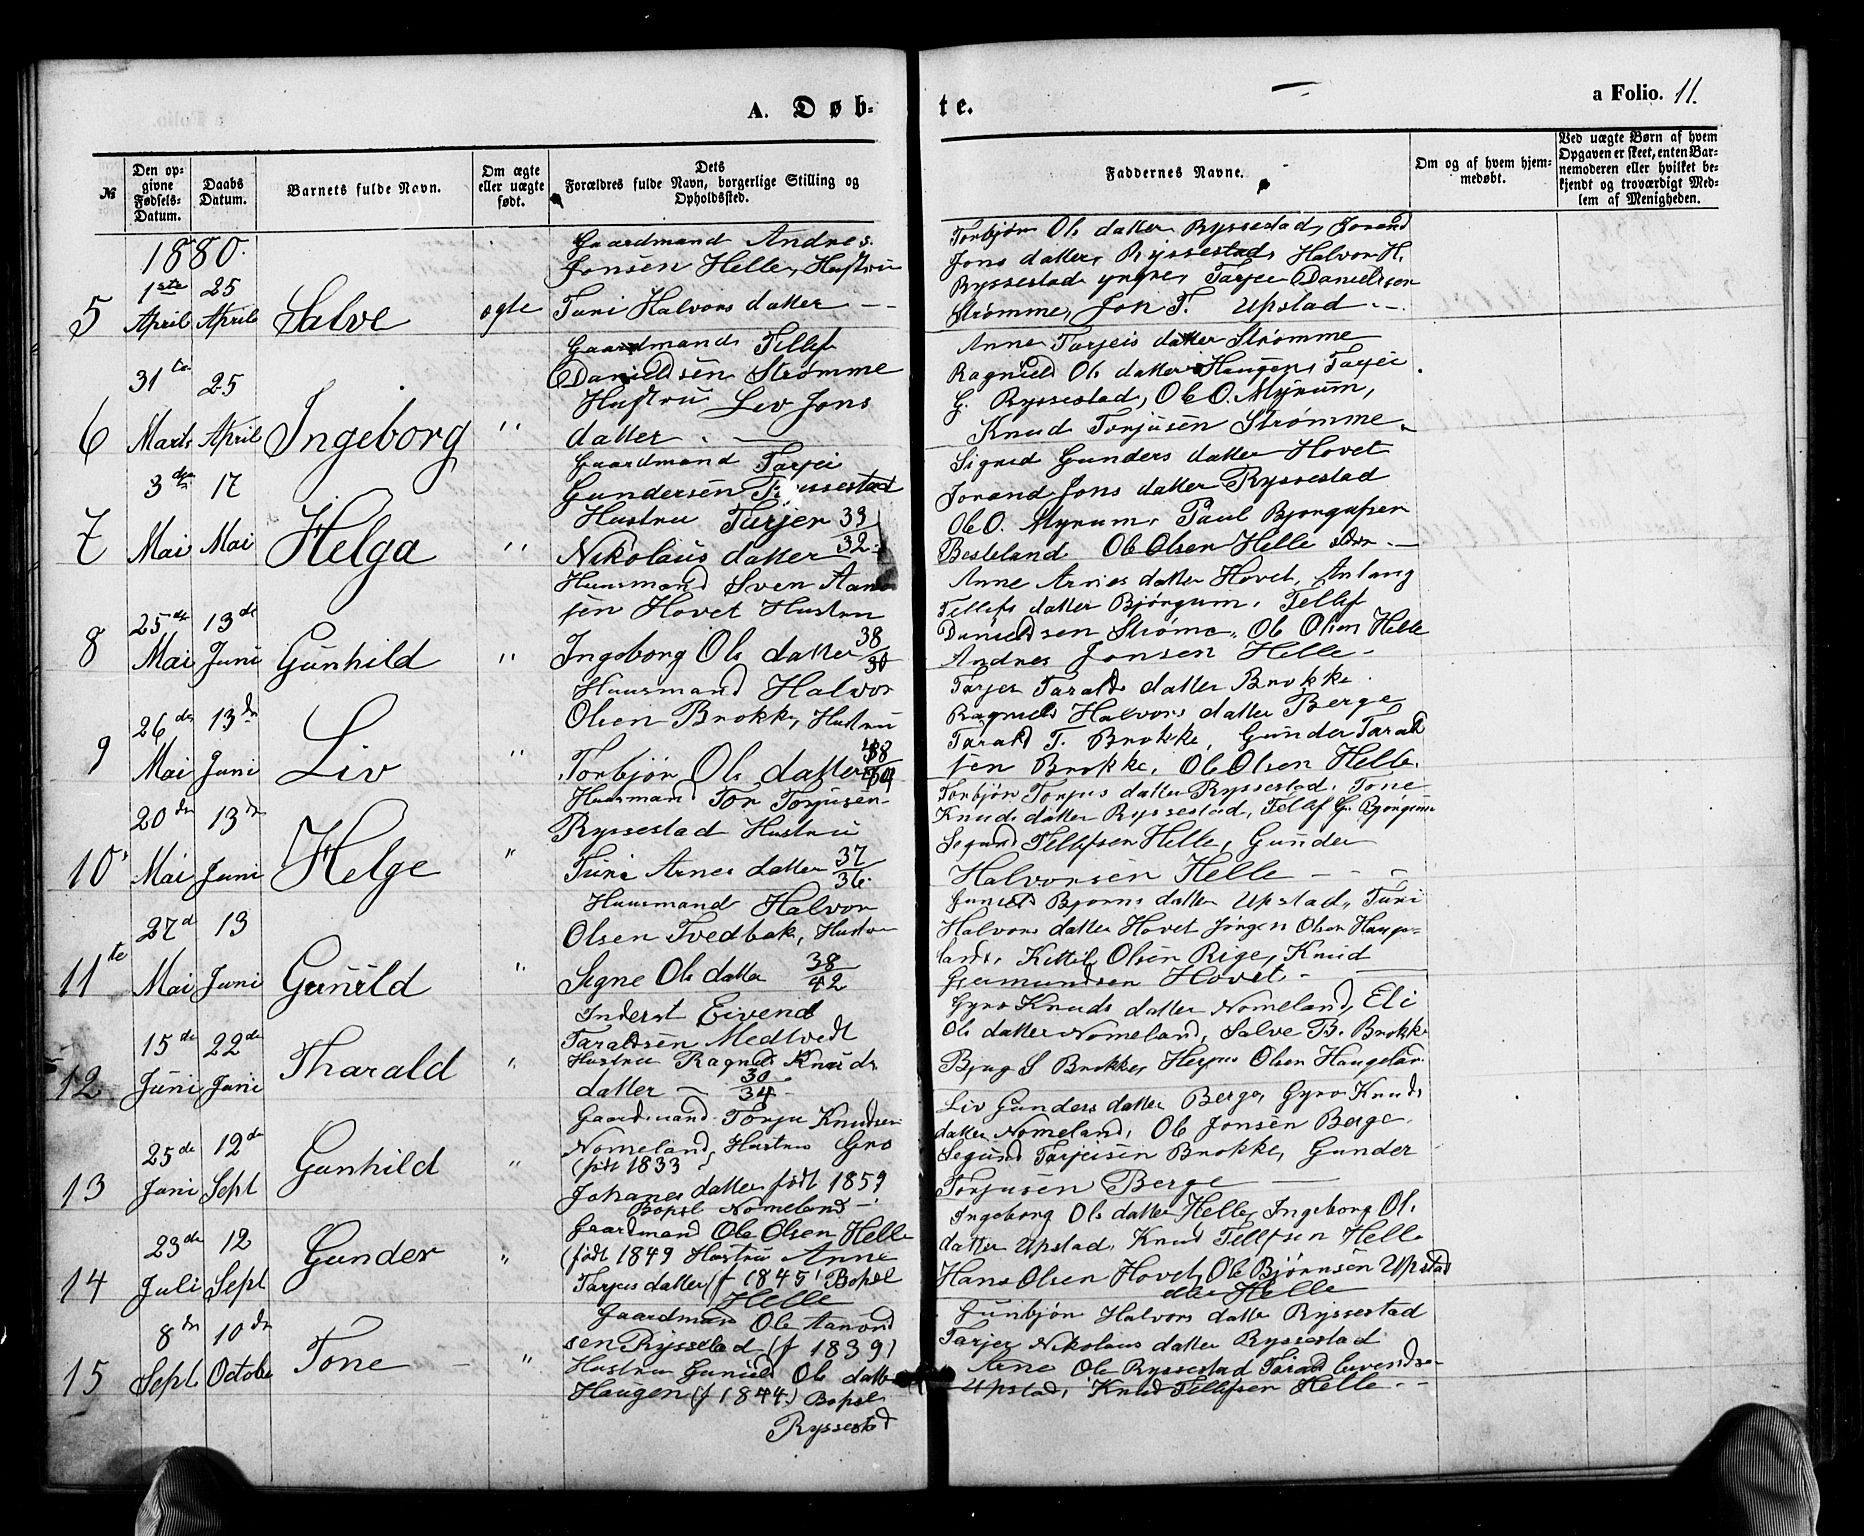 A. Døb-
te.
a Folio. 11.
№
Den op-
givne
Fødsels-
Datum.
Daabs
Datum.
Barnets fulde Navn.
Om ægte
eller uægte
født.
Dets
Forældres fulde Navn, borgerlige Stilling og
Opholdssted.
Faddernes Navne.
Om og af hvem hjem-
medøbt.
Ved uægte Børn af hvem
Opgaven er skeet, enten Bar-
nemoderen eller hvilket be-
kjendt og troværdigt Med-
lem af Menigheden.
1880.
5
1ste April
25 April
Salve
ægte
Gaardmand Andres
Jonsen Helle, Hustru
Turi Halvors datter
Torbjør Ols datter Ryssestad, Jorand
Jons datter, Ryssestad, Halvor H.
Ryssestad yngre, Tarjei Danielsson
Strømme, Jon T. Upstad
6
31 Marts
25 April
Ingeborg
"
Gaardmand Tellef
Danieldsen Strømme
Hustru Liv Jons
datter
Anne Tarjeis datter Strømme
Ragnild Ols datter Haugen, Tarjei
G. Ryssestad, Ole O. Myrum,
Knud Torjusen Strømme
7
3die Mai
17 Mai
Helga
"
Gaardmand Tarjei
Gundersen Ryssestad
Hustru Tarjer 33
Nikolaus datter 32
Signe Gunders datter Hovet
Jorand Jons datter Ryssestad
Ole O. Myrum, Paul Bjorgufsen
Besteland Ole Olsen Helle
8
25de Mai
13de Juni
Gunhild
"
Huusmand Sven Aan
sen Hovet Hustru
Ingeborg Ols datter 38
30
Anne Arnes datter Hovet, Anlaug
Tellefs datter Bjørgum, Tellef
Danieldsen Strøme, Ole Olsen Helle
Andres Jonsen Helle
9
26de Mai
13de Juni
Liv
"
Huusmand Halvor
Olsen Brokke, Hustru
Torbjør Ols datter
Tarjer Taralds datter Brokke
Ragnild Halvors datter Berge
Tarald T. Brokke, Gunder Tarald
sen Brokke, Ole Olsen Helle.
10
20de Mai
13de Juni
Helge
"
Huusmand Tor Torjusen
Ryssestad Hustru
Turi Arnes datter 37
36
Torbjør Torjus datter Ryssestad, Tone
Knuds datter Ryssestad, Tellef G. Bjørgum
Segund Tellefsen Helle, Gunder
Halvorsen Helle
11te
27d Mai
13 Juni
Gunild
"
Huusmand Halvor
Olsen Tvedbak, Hustru
Signe Ols datter 38
42
Gunild Bjorns datter Upstad, Turi
Halvors datter Hovet Jørgen Olsen Hauge-
land, Kittil Olsen Rige, Knud
Gjermundsen Hovet
12
15de Juni
22de Juni
Tharald
"
Inderst Eivend
Taraldsen Medtvedt
Hustru Ragnild Knuds
datter 30
34
Gyro Knuds datter Nomeland, Eli
Ols datter Nomeland, Salve B. Brokke
Bjug S Brokke, Olsen Haugeland
13
25de Juni
12de Sept
Gunhild
"
Gaardmand Torju Knudsen
Nomeland, Hustru Gro
(født 1833
Johanes datter født 1859
Bopæl Nomeland
Liv Gunders datter Berge, Gyro Knuds
datter Nomeland, Ole Jonsen Berge
Segund Tarjeisen Brokke, Gunder
Torjusen Berge
14
23de Juli
12 Sept
Gunder
"
Gaardmand Ole Olsen Helle
(født 1849 Hustru Anne
Tarjus datter (f 1845) Bopæl
Helle
Ingeborg Ols datter Helle, Ingeborg Ols
datter Upstad, Knud Tellefsen Helle
Hans Olsen Hovet, Ole Bjørnsen Upstad
eller Helle
15
8de Sept
10de October
Tone
"
Gaardmand Ole Aanund
sen Ryssestad (f 1839)
Hustru Gunild Ols datter
Haugen (f 1844) Bopæl
Ryssestad
Gunbjør Halvors datter Ryssestad
Tarjer Nikolaus datter Ryssestad
Arne Ols Ryssestad Tarald Eivendsen
Upstad, Knud Tellefsen Helle